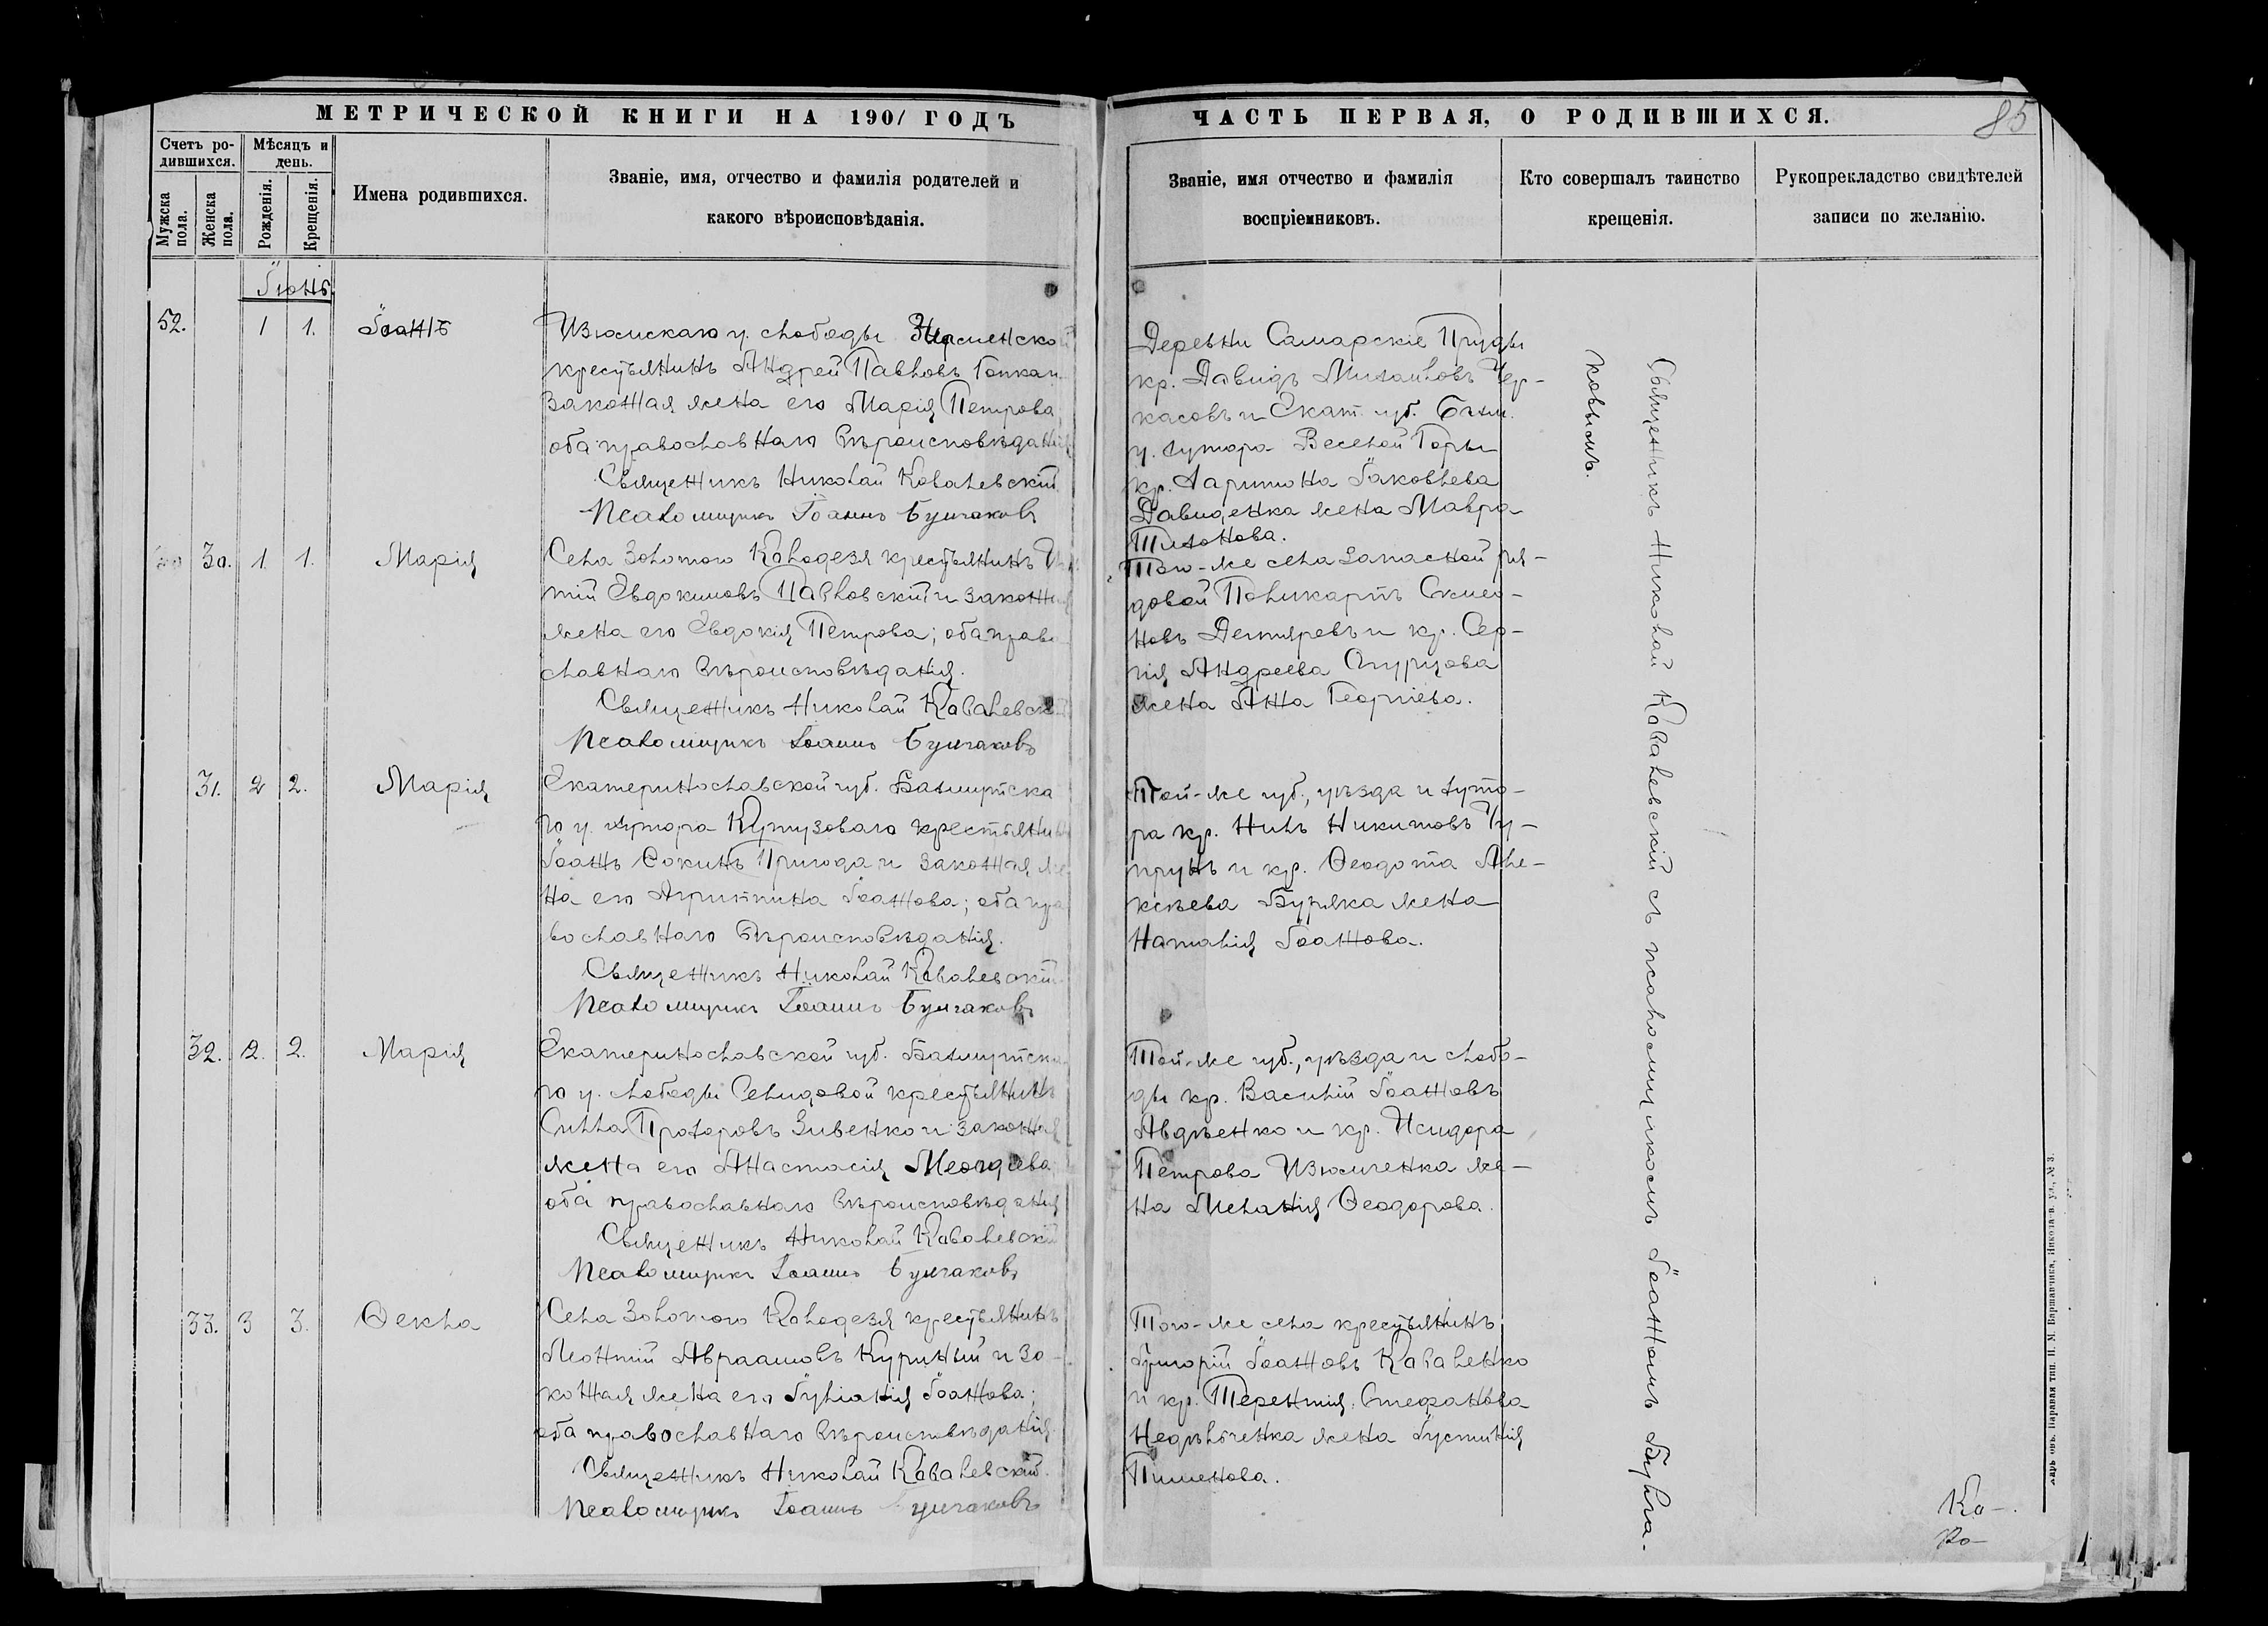 МЕТРИЧЕСКОЙ КНИГИ НА 1901 ГОДЪ
ЧАСТЬ ПЕРВАЯ, О РОДИВШИХСЯ.
85
Счетъ ро-
дившихся.
Мужска пола.
Женска пола.
Мѣсяцъ и
день.
Рожденія.
Крещенія.
Имена родившихся.
Званіе, имя, отчество и фамилія родителей и
какого вѣроисповѣданія.
Званіе, имя отчество и фамилія
воспріемниковъ.
Кто совершалъ таинство
крещенія.
Рукоприкладство свидѣтелей
записи по желанію.
Іюнь.
52. 1 1. Іоаннъ
Изюмскаго у. слободы Знаменской
крестьянинъ Андрей Павловъ
законная жена его Марія Петрова,
оба православнаго вѣроисповѣданія
Священникъ Николай Ковалевскій
Псаломщикъ Іоаннъ Булгаковъ
Деревни Самарскіе Пруды
кр. Давидъ Михаиловъ Чер-
касовъ и Екат. губ. Бахм.
у. хутора Веселой Горы
кр. Иаковлева
Давиденка жена Мавра
Тихонова.
30. 1. 1. Марія
Села Золотого Колодезя крестьянинъ
тій Евдокимовъ Павловскій и законная
жена его Евдокія Петрова; оба право
славнаго вѣроисповѣданія.
Священникъ Николай Ковалевскій
Псаломщикъ Іоаннъ Булгаковъ
Того-же села запасной ря-
довой Поликарпъ Симео-
новъ Дегтяревъ и кр. Сер-
гія Андреева Огурцова
жена Анна Георгіева.
31. 2 2. Марія
Екатеринославской губ. Бахмутска
го у. хутора Кутузоваго крестьянинъ
Іоаннъ Фокинъ Пригода и законная же
на его Агриппина Іоаннова; оба пра
вославнаго вѣроисповѣданія.
Священникъ Николай Ковалевскій
Псаломщикъ Іоаннъ Булгаковъ
Той-же губ., уѣзда и хуто-
ра кр. Нилъ Никитовъ Чу-
прунъ и кр. Ѳеодота Але-
ксѣева Буряка жена
Наталія Іоаннова.
32. 2. 2. Марія
Екатеринославской губ. Бахмутска
го у. слободы Селидовой крестьянинъ
Силла Прохоровъ Зивенко и законная
жена его Анастасія
оба православнаго вѣроисповѣданія
Священникъ Николай Ковалевскій
Псаломщикъ Іоаннъ Булгаковъ
Той-же губ., уѣзда и слобо-
ды кр. Василій Іоанновъ
Авдѣенко и кр. Исидора
Петрова Изюмченка же-
на Меланія Ѳеодорова.
33. 3 3. Ѳекла
Села Золотого Колодезя крестьянинъ
Леонтій Авраамовъ Куриный и за-
конная жена его Іуліанія Іоаннова;
оба православнаго вѣроисповѣданія
Священникъ Николай Ковалевскій.
Псаломщикъ Іоаннъ Булгаковъ
Того-же села крестьянинъ
Григорій Іоанновъ Коваленко
и кр. Терентія Стефанова
Недѣльченка жена Іустинія
Пименова.
Священникъ Николай Ковалевскій съ псаломщикомъ Іоанномъ Булга-
ковымъ.
Ко-
Ко-